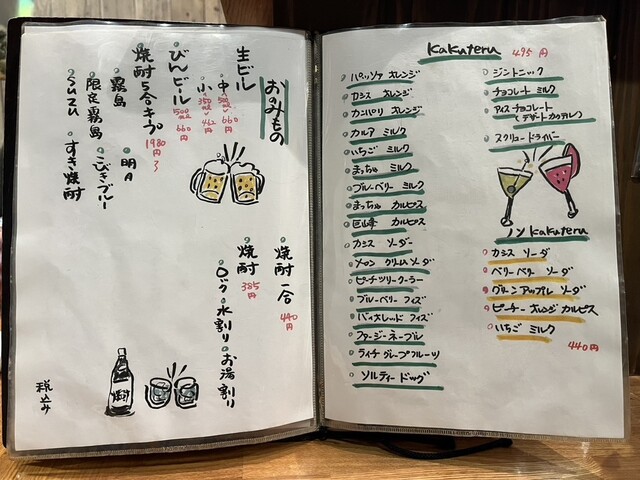 おのみもの
生ビール
・中 500ml 660円
・小 350ml 462円
びんビール 500ml 660円
焼酎5合キープ 1980円〜
・霧島 ・明月
・限定霧島
・suzu ・すき焼酎
焼酎一合 440円
焼酎 385円
・ロック・水割り・お湯割り
焼酎
税込み
Kakuteru 495円
パッソア オレンジ
カシス オレンジ
カンパリ オレンジ
カルア ミルク
いちご ミルク
まっちゃ ミルク
ブルーベリー ミルク
まっちゃ カルピス
巨山峰 カルピス
カシス ソーダー
メロン クリームソーダ
ピーチツリークーラー
ブルーベリー フィズ
バイオレット フィズ
ファジーネーブル
ライチ グレープフルーツ
ソルティー ドッグ
ジントニック
チョコレート ミルク
アイス チョコレート
(デザートカクテル)
スクリュードライバー
ノン Kakuteru
カシス ソーダ
ベリーベリー ソーダ
グリーンアップル ソーダ
ピーチー オレンジ カルピス
いちご ミルク
440円